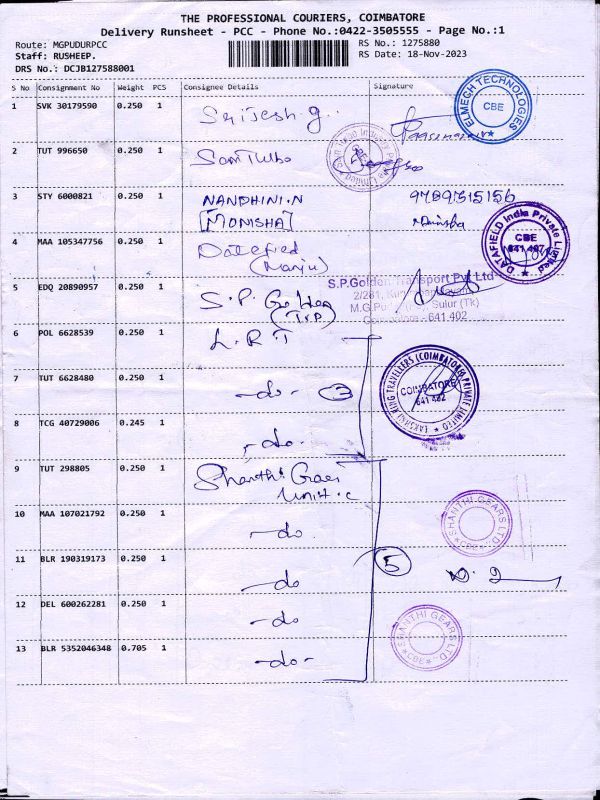 THE PROFESSIONAL COURIERS, COIMBATORE
Delivery Runsheet - PCC - Phone No.:0422-3505555 - Page No.:1
Route: MGPUDURPCC RS No.: 1275880
Staff: RUSHEEP. RS Date: 18-Nov-2023
DRS No.: DCJB127588001
S No Consignment No Weight PCS Consignee Details Signature
1 SVK 30179590 0.250 1 Srijesh.g.
ELMECH TECHNOLOGIES
CBE
2 TUT 996650 0.250 1
3 STY 6000821 0.250 1 NANDHINI.N 9789515156
[MONISHA] Monisha
4 MAA 105347756 0.250 1 Datefied
(Manju)
DATAFIELD India Private Limited
CBE
5 EDQ 20890957 0.250 1 S.P. Golden
(TrP)
S.P.Golden Transport Pvt Ltd
2/281,
Sulur (Tk)
641 402
6 POL 6628539 0.250 1 L.R T
7 TUT 6628480 0.250 1 -do- 3
LAKSHMI RING TRAVELLERS (COIMBATORE) PRIVATE LIMITED
COIMBATORE
641 402
8 TCG 40729006 0.245 1 -do-
9 TUT 298805 0.250 1 Shanthi Gears
Unit.c
10 MAA 107021792 0.250 1 -do.
SHANTHI GEARS LTD.
CBE
11 BLR 190319173 0.250 1 -do 5
12 DEL 600262281 0.250 1 -do
13 BLR 5352046348 0.705 1 -do-
SHANTHI GEARS LTD.
CBE